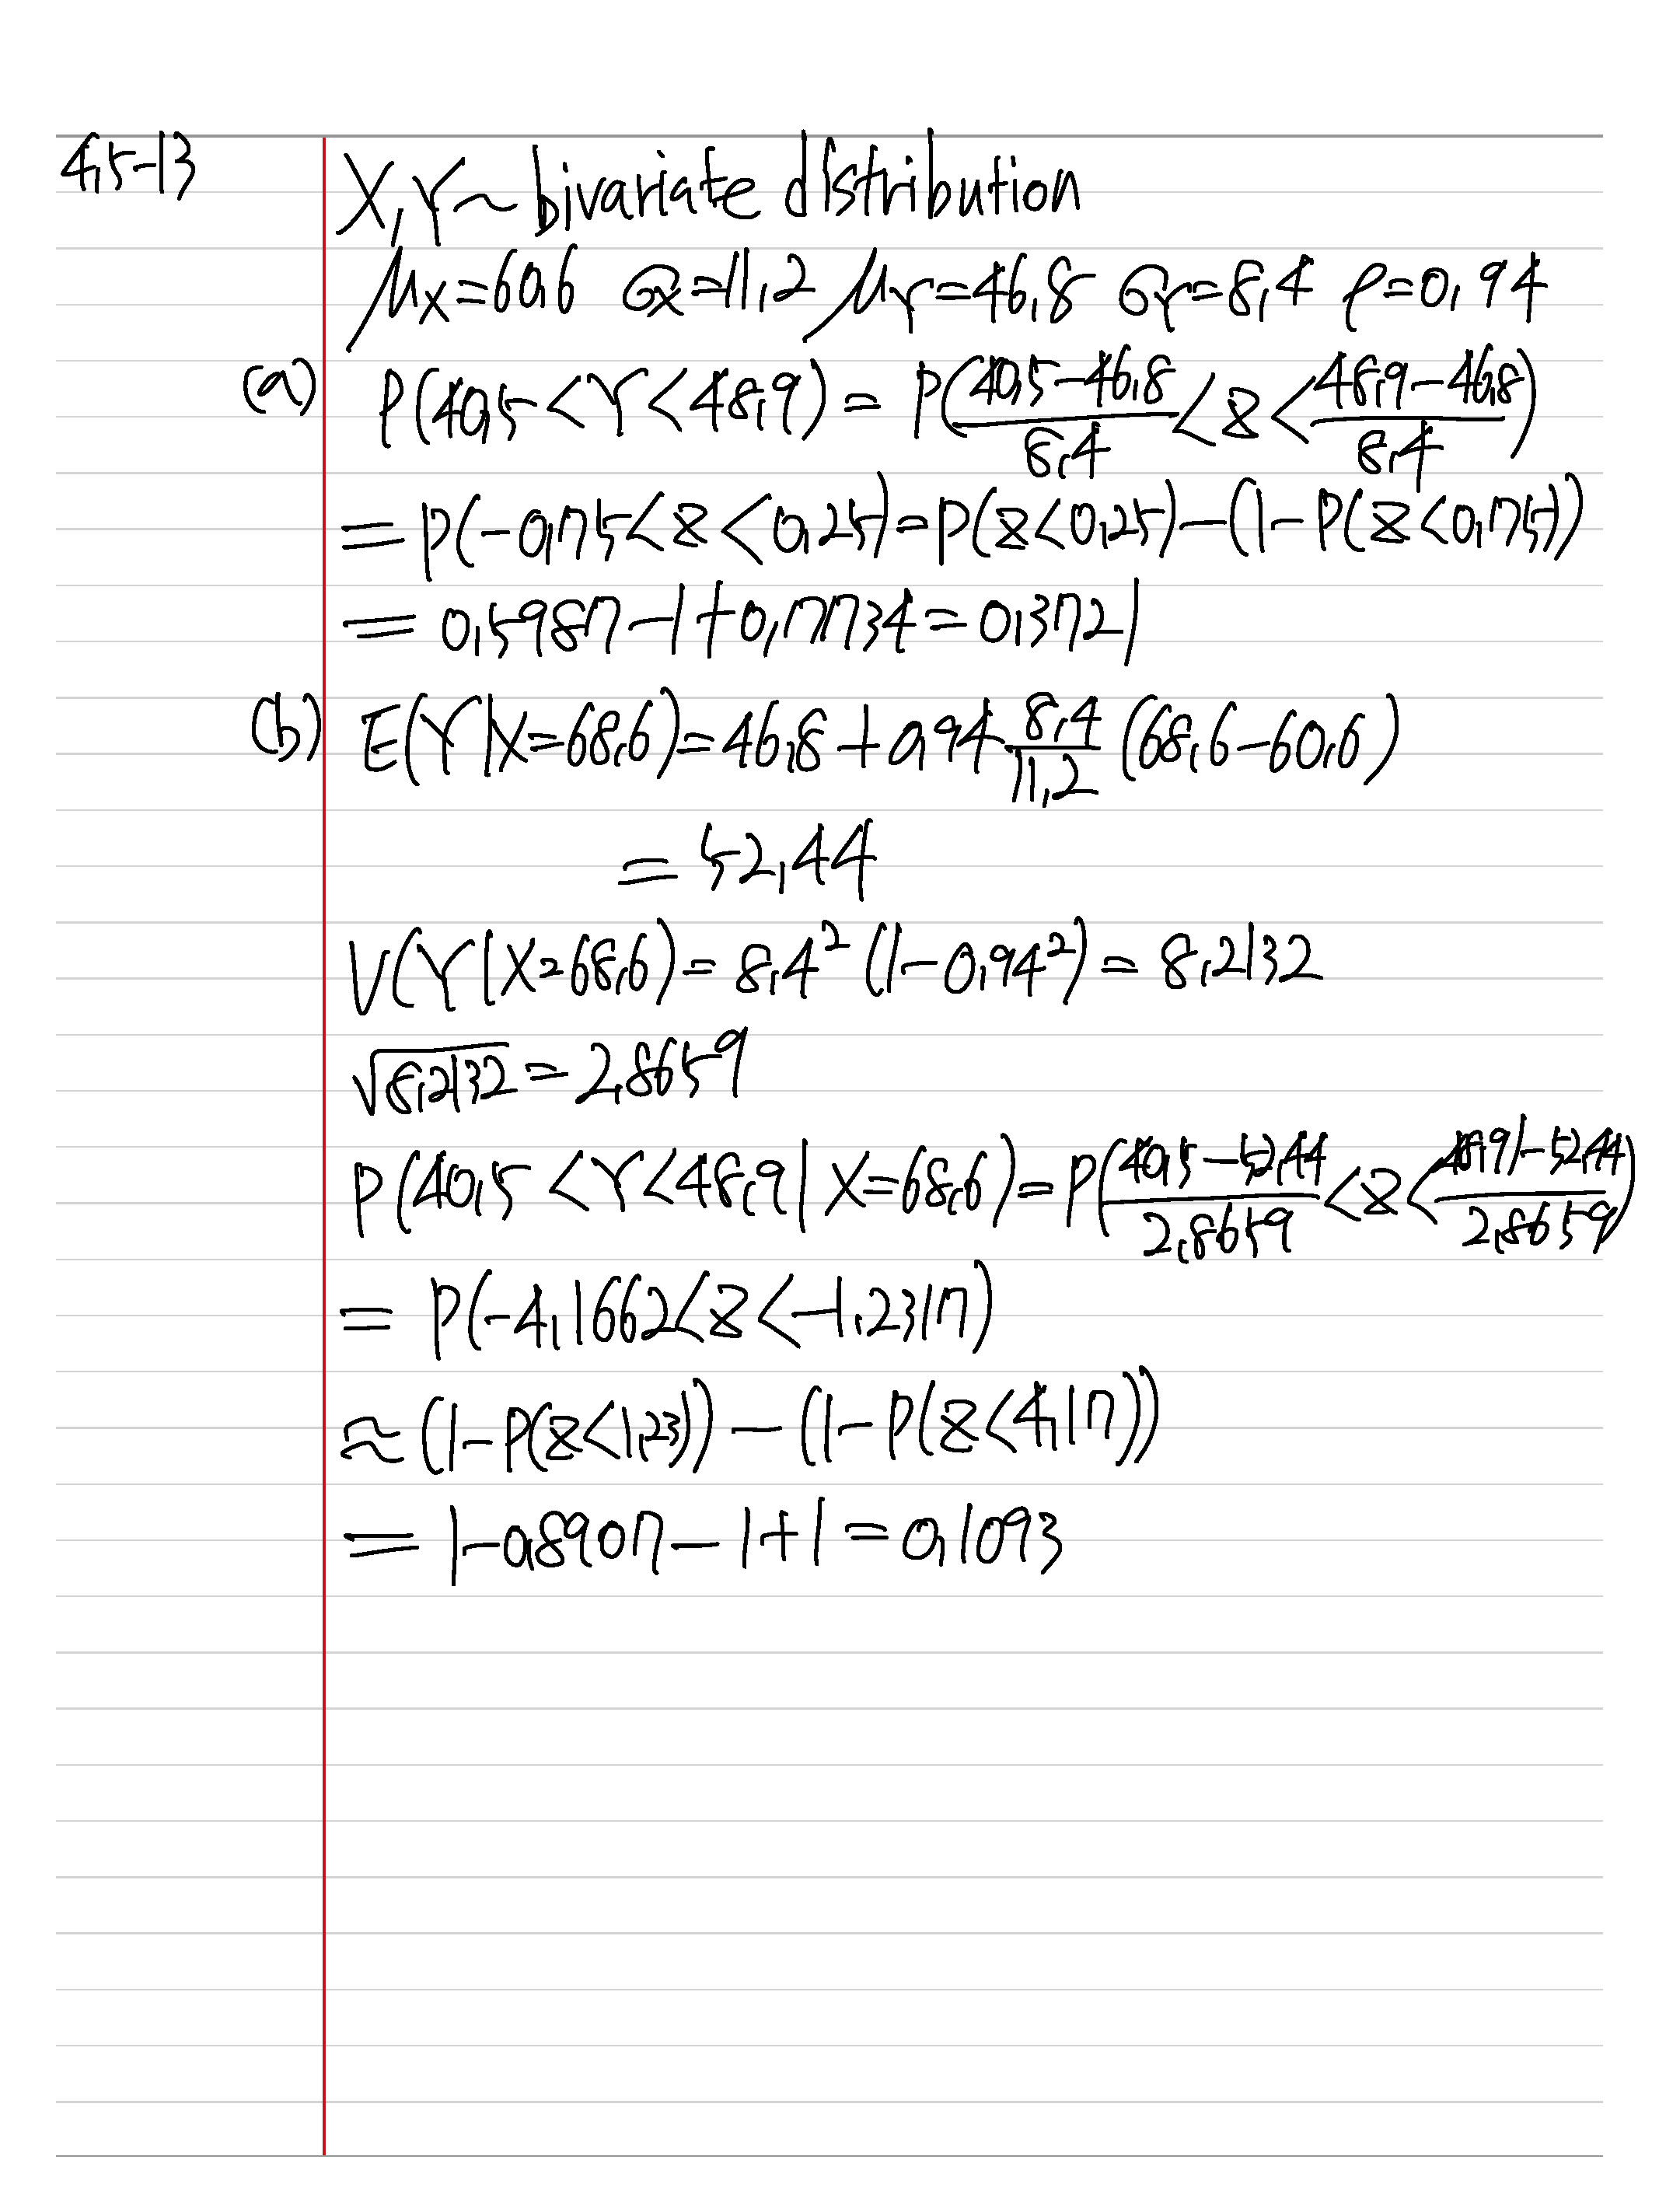 4.5-13 X, Y ~ bivariate distribution
μ_X = 60.6 σ_X = 11.2 μ_Y = 46.8 σ_Y = 8.4 ρ = 0.94
(a) P(40.5 < Y < 48.9) = P((40.5-46.8)/8.4 < Z < (48.9-46.8)/8.4)
= P(-0.75 < Z < 0.25) = P(Z < 0.25) - (1 - P(Z < 0.75))
= 0.5987 - 1 + 0.7734 = 0.3721
(b) E(Y|X=68.6) = 46.8 + 0.94 8.4/11.2 (68.6-60.6)
= 52.44
V(Y|X=68.6) = 8.4² (1-0.94²) = 8.2132
√8.2132 = 2.8659
P(40.5 < Y < 48.9 | X=68.6) = P((40.5-52.44)/2.8659 < Z < (48.9-52.44)/2.8659)
= P(-4.1662 < Z < -1.2317)
≈ (1-P(Z<1.23)) - (1-P(Z<4.17))
= 1-0.8907-1+1 = 0.1093